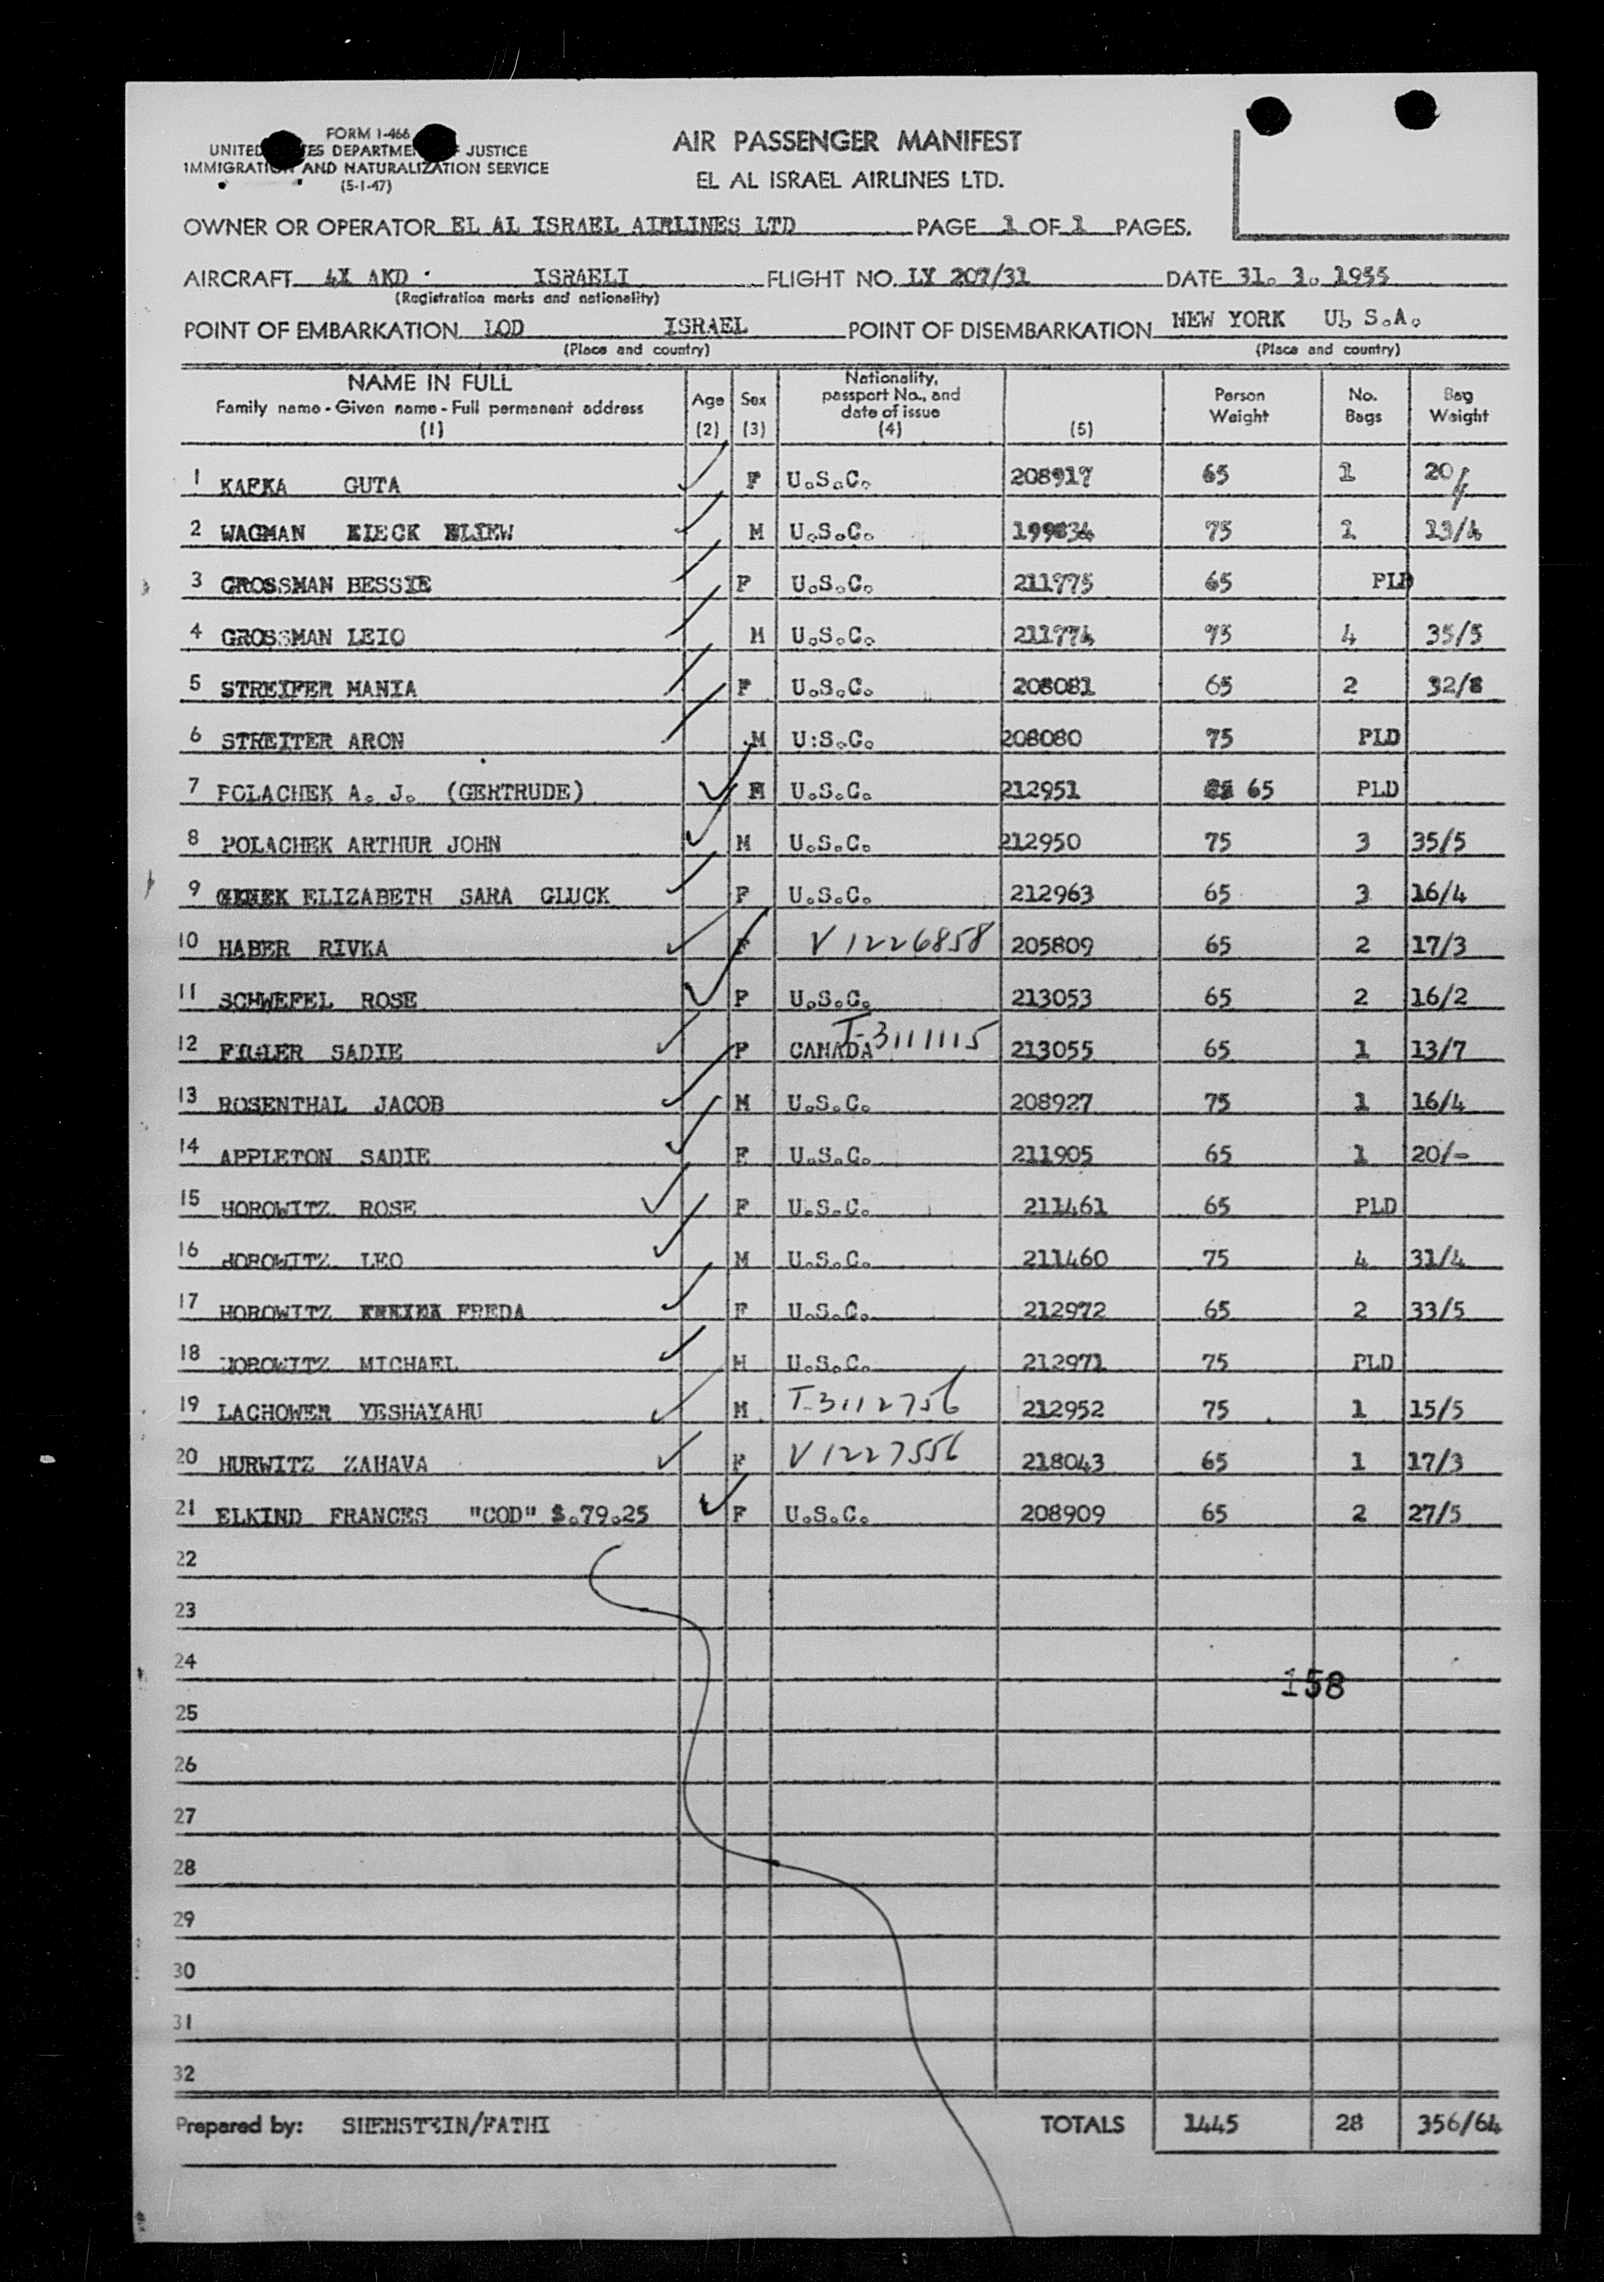 FORM I-466
UNITED STATES DEPARTMENT OF JUSTICE
IMMIGRATION AND NATURALIZATION SERVICE
(5-1-47)
AIR PASSENGER MANIFEST
EL AL ISRAEL AIRLINES LTD.
OWNER OR OPERATOR EL AL ISRAEL AIRLINES LTD PAGE 1 OF 1 PAGES.
AIRCRAFT 4X AKD ISRAELI FLIGHT NO. LY 207/31 DATE 31. 3. 1955
(Registration marks and nationality)
POINT OF EMBARKATION LOD ISRAEL POINT OF DISEMBARKATION NEW YORK U, S.A.
(Place and country) (Place and country)
NAME IN FULL Age Sex Nationality, passport No., and date of issue Person Weight No. Bags Bag Weight
Family name - Given name - Full permanent address
(1) (2) (3) (4) (5)
1 KAFKA GUTA F U.S.C. 208917 65 1 20/
2 WAGMAN M U.S.C. 199834 75 1 13/4
3 GROSSMAN BESSIE F U.S.C. 211775 65 PLD
4 GROSSMAN LEIO M U.S.C. 211774 75 4 35/5
5 STREIFER MANIA F U.S.C. 208081 65 2 32/8
6 STREITER ARON M U:S.C. 208080 75 PLD
7 POLACHEK A. J. (GERTRUDE) U.S.C. 212951 65 PLD
8 POLACHEK ARTHUR JOHN M U.S.C. 212950 75 3 35/5
9 ELIZABETH SARA GLUCK F U.S.C. 212963 65 3 16/4
10 HABER RIVKA F V 1226858 205809 65 2 17/3
11 SCHWEFEL ROSE F U.S.C. 213053 65 2 16/2
12 SADIE F CANADA T-3111115 213055 65 1 13/7
13 ROSENTHAL JACOB M U.S.C. 208927 75 1 16/4
14 APPLETON SADIE F U.S.C. 211905 65 1 20/-
15 HOROWITZ ROSE F U.S.C. 211461 65 PLD
16 HOROWITZ LEO M U.S.C. 211460 75 4 31/4
17 HOROWITZ FREDA F U.S.C. 212972 65 2 33/5
18 HOROWITZ MICHAEL M U.S.C. 212971 75 PLD
19 LACHOWER YESHAYAHU M T-3112756 212952 75 1 15/5
20 HURWITZ ZAHAVA F V 1227556 218043 65 1 17/3
21 ELKIND FRANCES "COD" $.79.25 F U.S.C. 208909 65 2 27/5
22
23
24
158
25
26
27
28
29
30
31
32
Prepared by: SHENSTEIN/FATHI TOTALS 1445 28 356/64